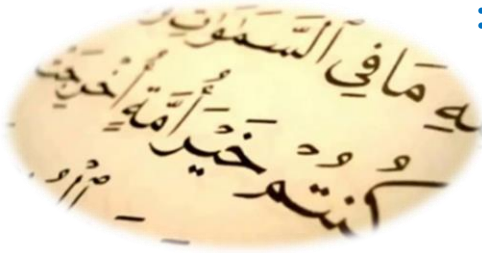 مَا فِي ٱلسَّمَٰوَٰتِ
كُنتُمْ خَيْرَ أُمَّةٍ أُخْرِجَتْ